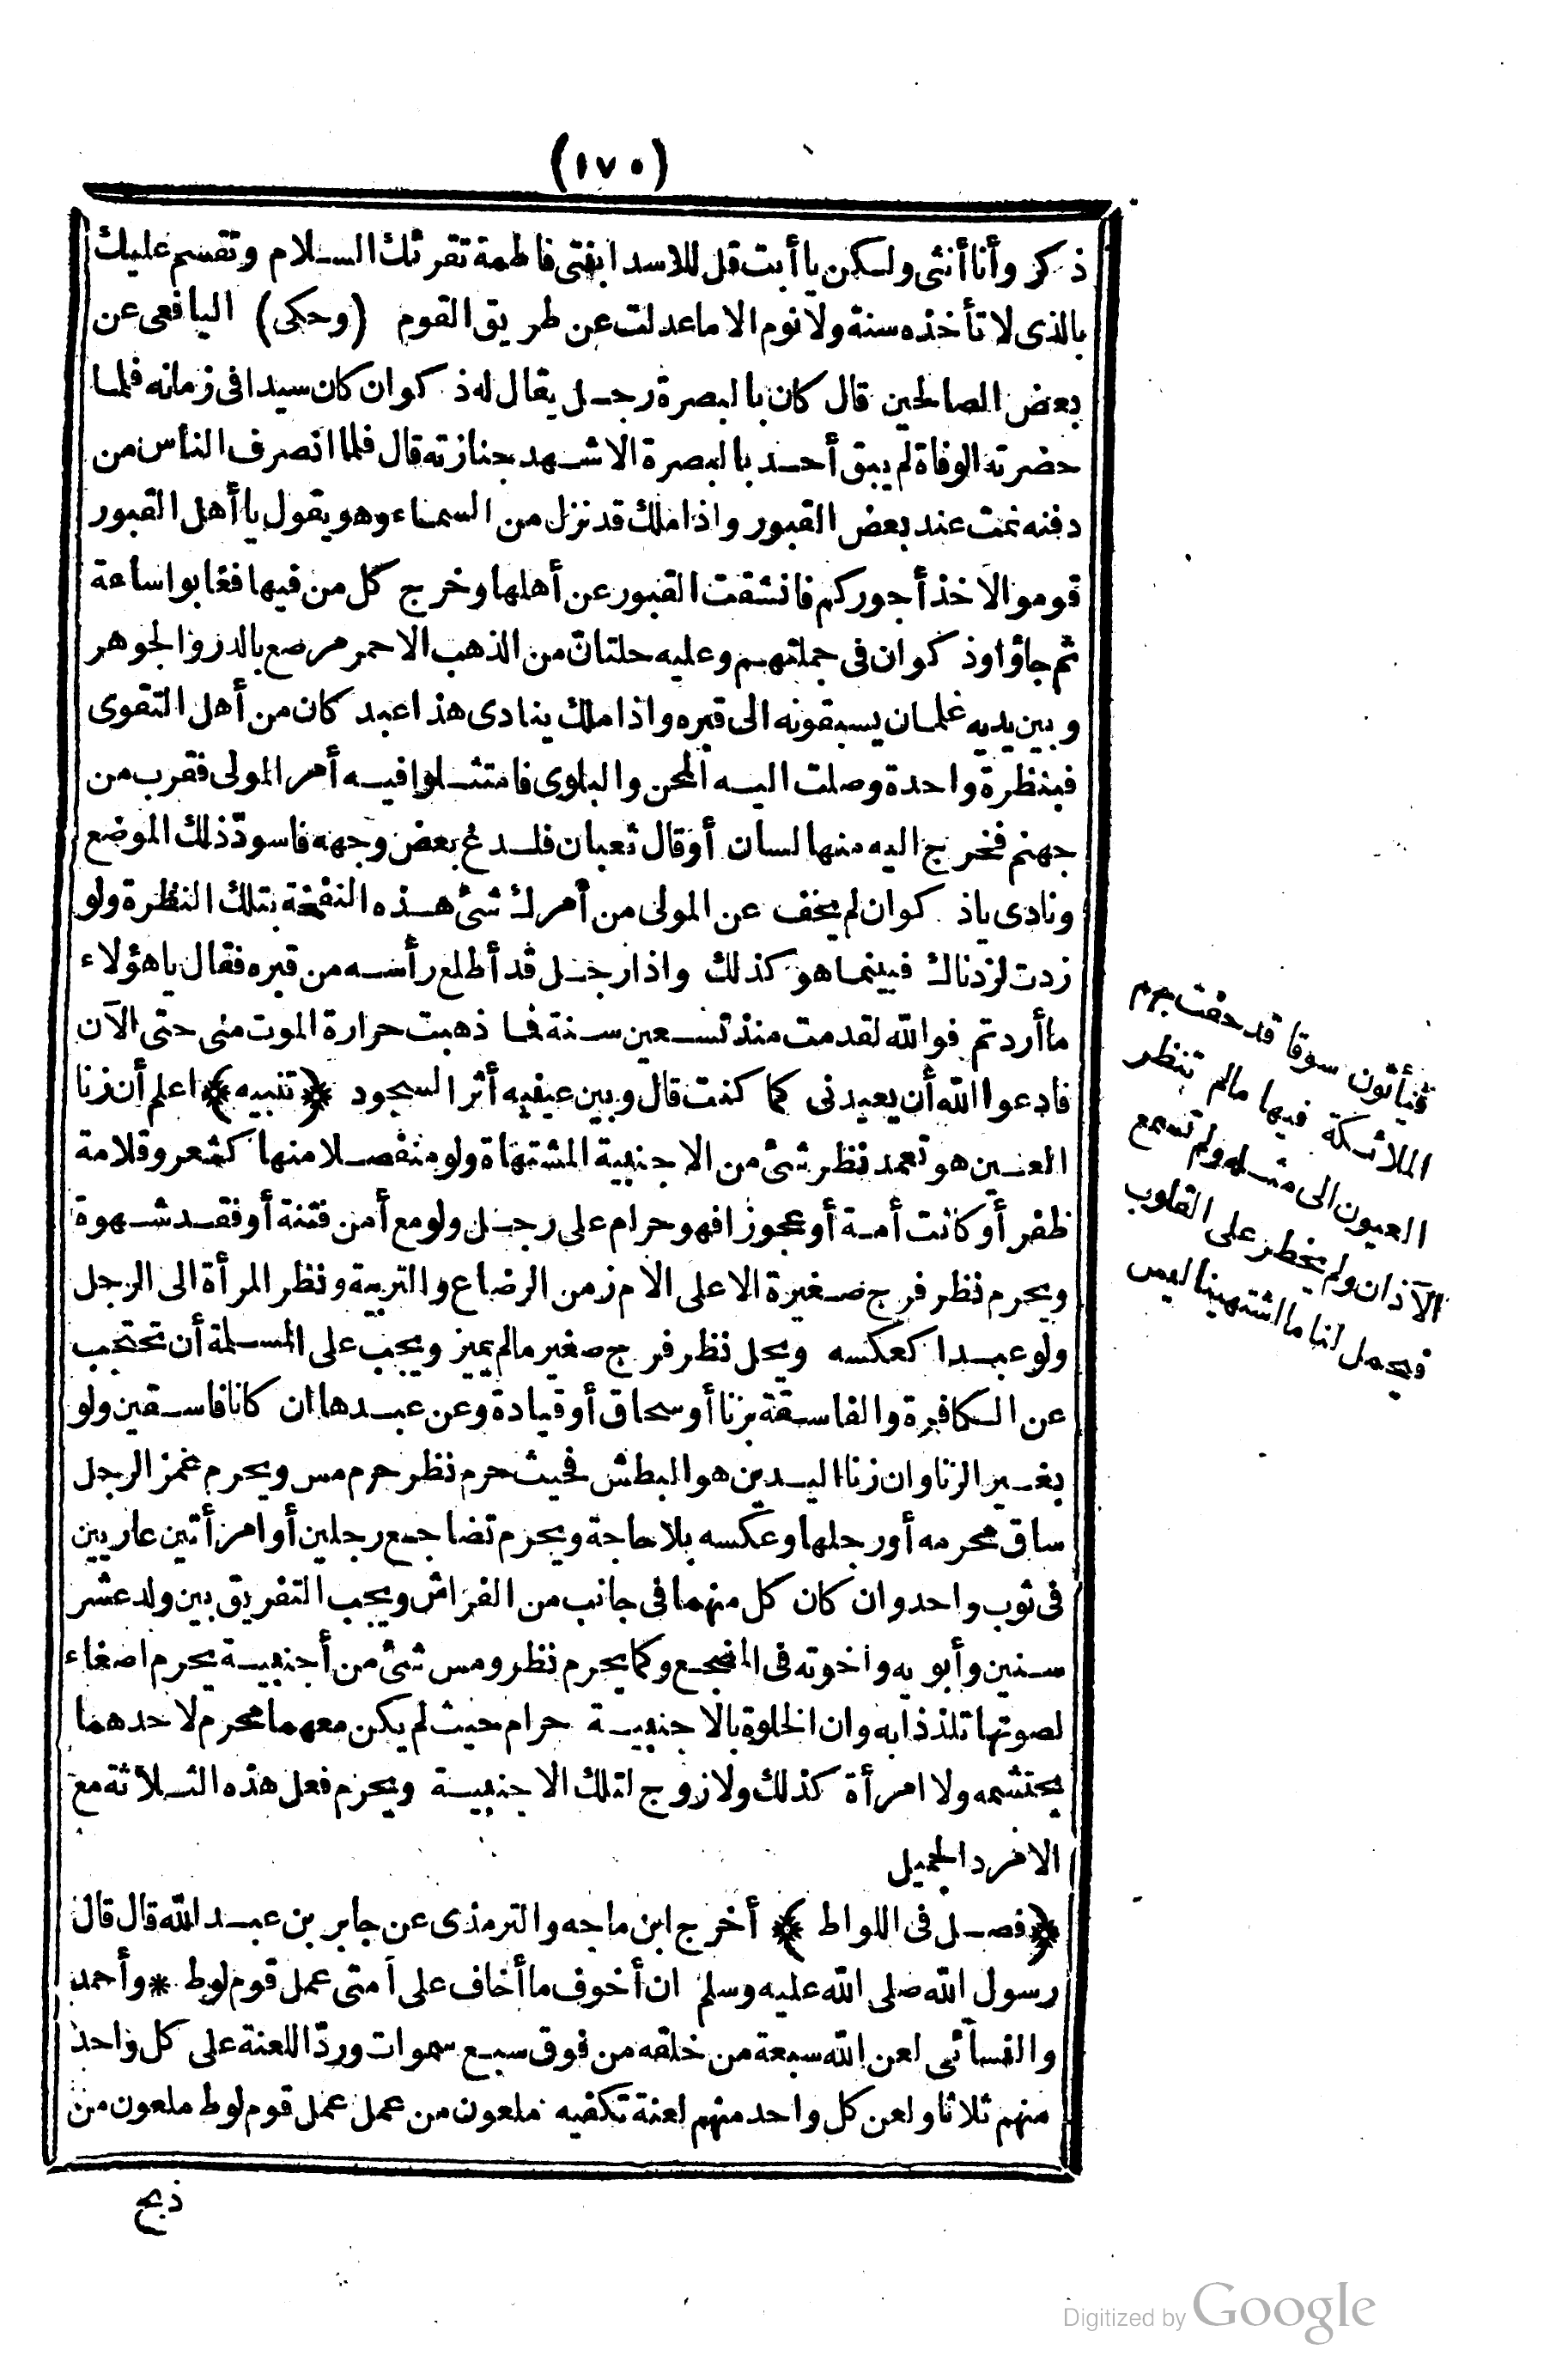 (١٧٠)
ذكر وأنا أنثى ولكن يا أبت قل للاسد ابنتى فاطمة تقرئك السلام وتقسم عليك
بالذى لا تأخذه سنة ولا نوم الا ما عدلت عن طريق القوم (وحكى) اليافعى عن
بعض الصالحين قال كان بالبصرة رجل يقال له ذكوان كان سيدا فى زمانه فلما
حضرته الوفاة لم يبق أحد بالبصرة الا شهد جنازته قال فلما انصرف الناس من
دفنه نمت عند بعض القبور واذا ملك قد نزل من السماء وهو يقول يا أهل القبور
قوموا لاخذ أجوركم فانشقت القبور عن أهلها وخرج كل من فيها فغابوا ساعة
ثم جاؤا وذكوان فى جملتهم وعليه حلتان من الذهب الاحمر مرصع بالدر والجوهر
وبين يديه غلمان يسبقونه الى قبره واذا ملك ينادى هذا عبد كان من أهل التقوى
فبنظرة واحدة وصلت اليه المحن والبلوى فامتثلوا فيه أمر المولى فقرب من
جهنم فخرج اليه منها لسان أو قال ثعبان فلدغ بعض وجهه فاسودّ ذلك الموضع
ونادى يا ذكوان لم يخف عن المولى من أمرك شئ هذه النفخة بتلك النظرة ولو
زدت لزدناك فبينما هو كذلك واذا رجل قد أطلع رأسه من قبره فقال يا هؤلاء
ما أردتم فوالله لقد مت منذ تسعين سنة فما ذهبت حرارة الموت منى حتى الآن
فادعوا الله أن يعيدنى كما كنت قال وبين عينيه أثر السجود ﴿تنبيه﴾ اعلم أن زنا
العين هو تعمد نظر شئ من الاجنبية المشتهاة ولو منفصلا منها كشعر وقلامة
ظفر أو كانت أمة أو عجوزا فهو حرام على رجل ولو مع أمن فتنة أو فقد شهوة
ويحرم نظر فرج صغيرة الا على الام زمن الرضاع والتربية ونظر المرأة الى الرجل
ولو عبدا كعكسه ويحل نظر فرج صغير ما لم يميز ويجب على المسلمة أن تحتجب
عن الكافرة والفاسقة بزنا أو سحاق أو قيادة وعن عبدها ان كانا فاسقين ولو
بغير الزنا وان زنا اليدين هو البطش فحيث حرم نظر حرم مس ويحرم غمز الرجل
ساق محرمه أو رجلها وعكسه بلا حاجة ويحرم تضاجع رجلين أو امرأتين عاريين
فى ثوب واحد وان كان كل منهما فى جانب من الفراش ويجب التفريق بين ولد عشر
سنين وأبويه واخوته فى المضجع وكما يحرم نظر ومس شئ من أجنبية يحرم اصغاء
لصوتها تلذذا به وان الخلوة بالاجنبية حرام حيث لم يكن معهما محرم لاحدهما
يحتشمه ولا امرأة كذلك ولا زوج لتلك الاجنبية ويحرم فعل هذه الثلاثة مع
الامرد الجميل
﴿فصل فى اللواط﴾ أخرج ابن ماجه والترمذى عن جابر بن عبد الله قال قال
رسول الله صلى الله عليه وسلم ان أخوف ما أخاف على أمتى عمل قوم لوط * وأحمد
والنسائى لعن الله سبعة من خلقه من فوق سبع سموات وردّ اللعنة على كل واحد
منهم ثلاثا ولعن كل واحد منهم لعنة تكفيه ملعون من عمل عمل قوم لوط ملعون من
ذبح
فيأتون سوقا قد حفت بهم
الملائكة فيها مالم تنظر
العيون الى مثله ولم تسمع
الآذان ولم يخطر على القلوب
فيحمل لنا ما اشتهينا ليس
Digitized by Google